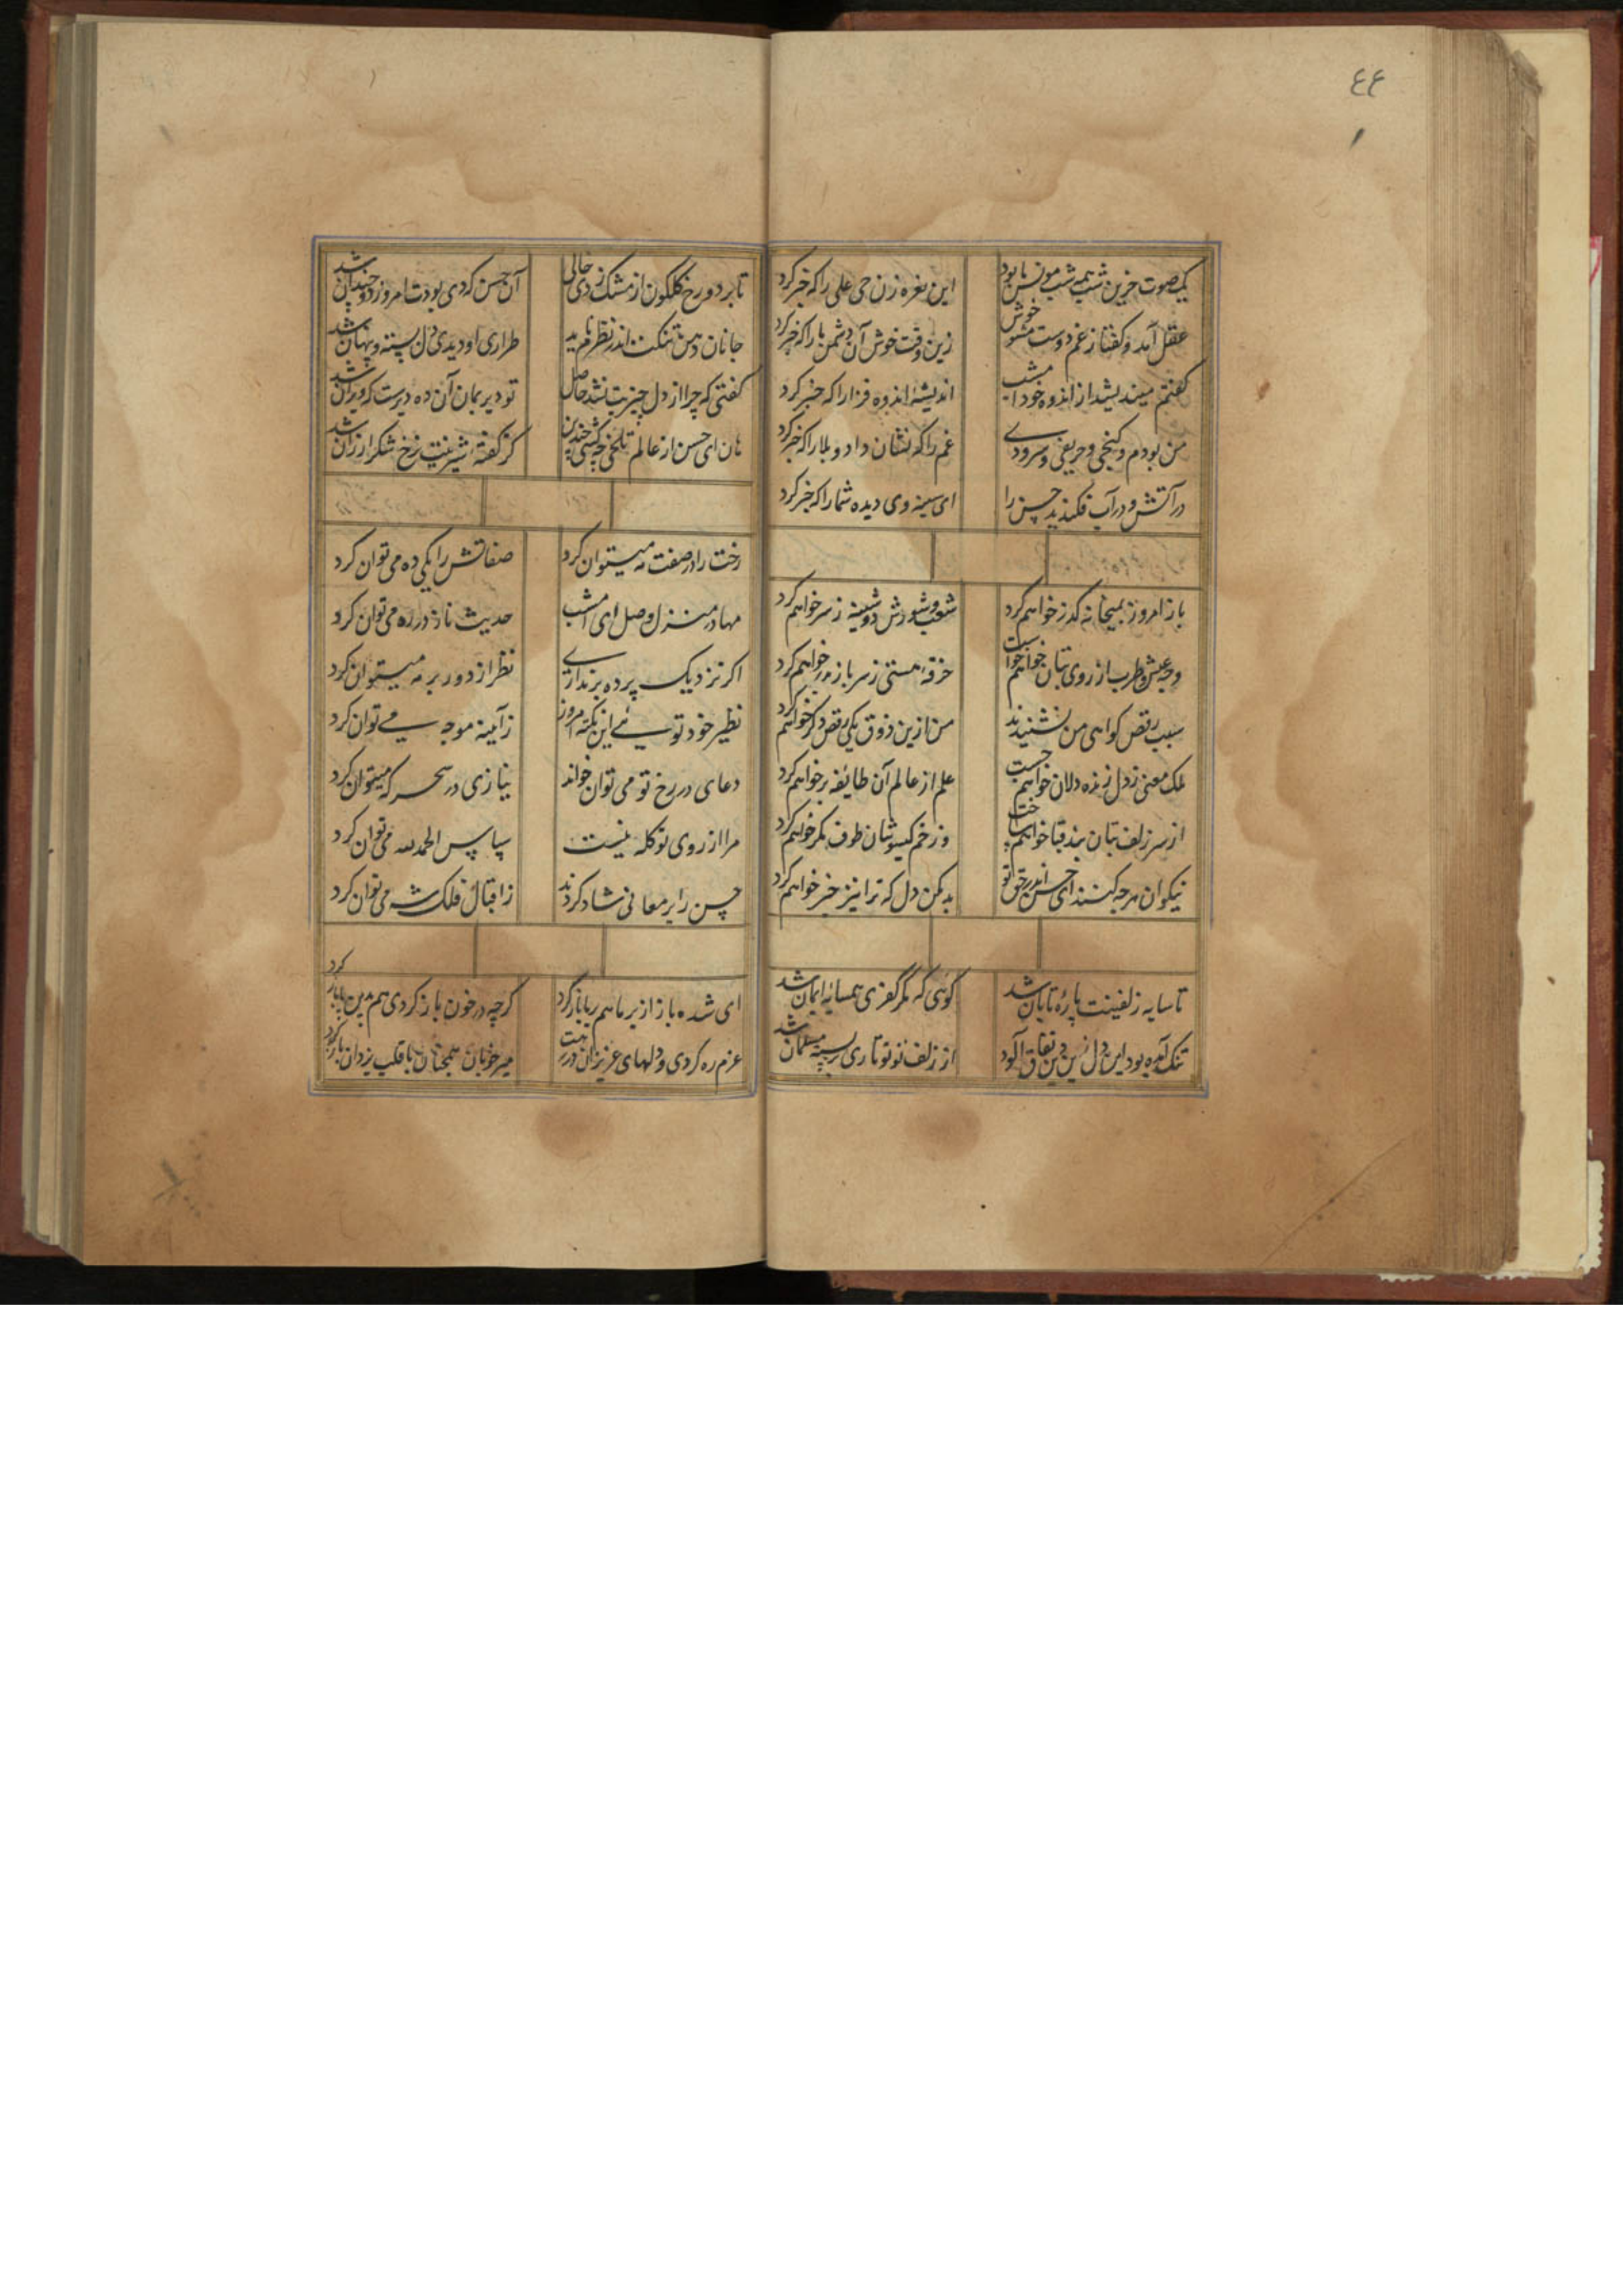 ٤٤
یک صوت حزین شب همه شب مونس ما بود
این نعره زن حی علی را که خبر کرد
عقل آمد و گفتا ز غم دوست مشو خوش
زین وقت خوش آن دشمن ما را که خبر کرد
گفتم میندیشد از اندوه خود امشب
اندیشهٔ اندوه فزا را که خبر کرد
من بودم و کنجی و حریفی و سرودی
غم را که نشان داد و بلا را که خبر کرد
در آتش و در آب فکندید حسن را
ای سینه وی دیده شما را که خبر کرد
باز امروز بمیخانه گذر خواهم کرد
شغب و شورش دوشینه ز سر خواهم کرد
وجه عیش و طرب از روی بتان خواهم خواست
خرقهٔ هستی ز سر باز بدر خواهم کرد
سبب رقص گواهی من نشنیدند
من ازین ذوق یکی رقص دگر خواهم کرد
ملک معنی ز دل زنده دلان خواهم جست
علم از عالم آن طائفه بر خواهم کرد
از سر زلف بتان بند قبا خواهم ساخت
وز خم گیسوشان طوف کمر خواهم کرد
نیکوان هرچه کنند ای حسن اندر حق تو
بد مکن دل که ترا نیز خبر خواهم کرد
تا سایه زلفینت پارهٔ تابان شد
گوئی که مگر کفری همسایهٔ ایمان شد
تنگ آمده بود این دل زین دین نفاق آلود
از زلف تو تو تاری بسته مسلمان شد
تا بر دو رخ گلگون از مشک زدی خالی
آن حسن که دی بودت امروز دو چندان شد
جانان دهن تنگت اندر نظرم نامد
طراری او دیدی دل بسته و پنهان شد
گفتی که چرا از دل چیزیت نشد حاصل
تو دیر بمان آن ده دیرست که ویران شد
هان ای حسن از عالم تلخی چه کشی چندین
کز گفتهٔ شیرینت نرخ شکر ارزان شد
رخت را در صفت مه میتوان کرد
صفاتش را یکی ده می توان کرد
مها در منزل وصل ای امشب
حدیث ناز در ره می توان کرد
اگر نزدیک پرده بر نداری
نظر از دور بر مه میتوان کرد
نظیر خود توئی این نکته امروز
ز آینه موجه می توان کرد
دعای در رخ تو می توان خواند
نیازی در سحرگه میتوان کرد
مرا از روی تو گله نیست
سپاس الحمد لله می توان کرد
حسن را بر معانی شاد کردند
ز اقبال فلک شه می توان کرد
ای شده باز از بر ما هم بیا باز گرد
گرچه در خون باز کردی هم بدین پا باز گرد
عزم ره کردی و دلهای عزیزان در پیت
میر خوبان همچنان با قلب یزدان باز گرد